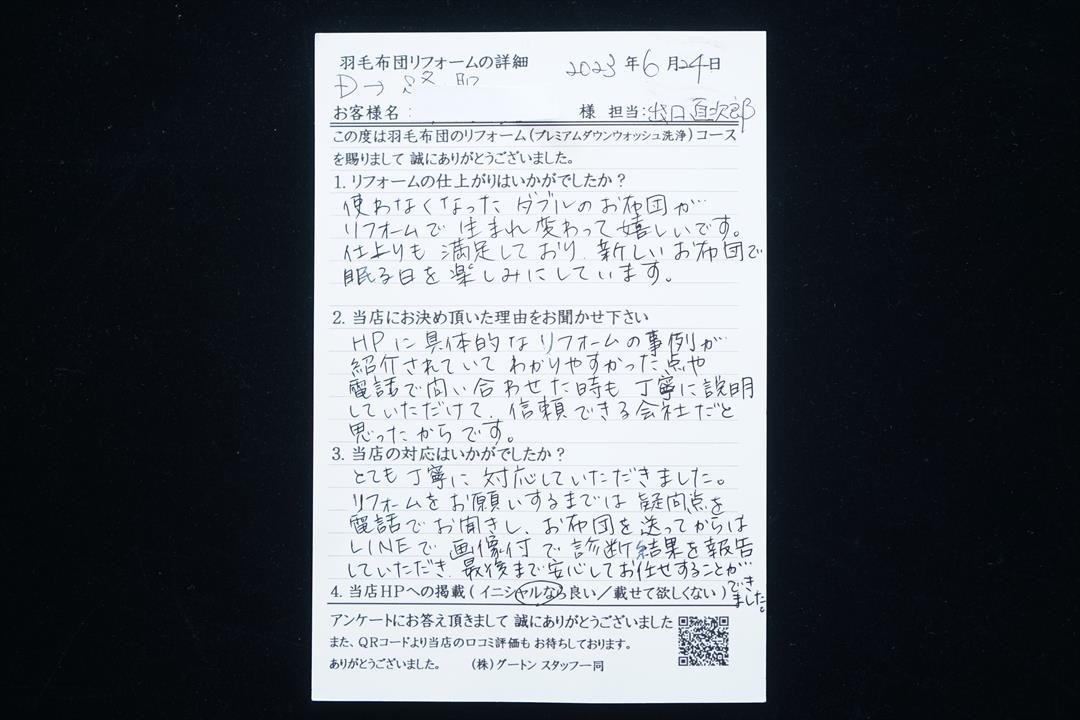 羽毛布団リフォームの詳細 2023年6月24日
D→
お客様名: 様 担当:出口直次郎
この度は羽毛布団のリフォーム(プレミアムダウンウォッシュ洗浄)コース
を賜りまして 誠にありがとうございました。
1. リフォームの仕上がりはいかがでしたか?
使わなくなった ダブルのお布団が
リフォームで 生まれ変わって嬉しいです。
仕上りも 満足しており、新しいお布団で
眠る日を楽しみにしています。
2. 当店にお決め頂いた理由をお聞かせ下さい
HPに具体的なリフォームの事例が
紹介されていて わかりやすかった点や
電話で問い合わせた時も 丁寧に説明
していただけて、信頼できる会社だと
思ったからです。
3. 当店の対応はいかがでしたか?
とても丁寧に 対応していただきました。
リフォームをお願いするまでは 疑問点を
電話でお聞きし、お布団を送ってからは
LINEで 画像付で診断結果を報告
していただき、最後まで安心してお任せすることが
できました。
4. 当店HPへの掲載(イニシャルなら良い/載せて欲しくない)
アンケートにお答え頂きまして 誠にありがとうございました
また、QRコードより当店の口コミ評価も お待ちしております。
ありがとうございました。 (株)グートン スタッフ一同